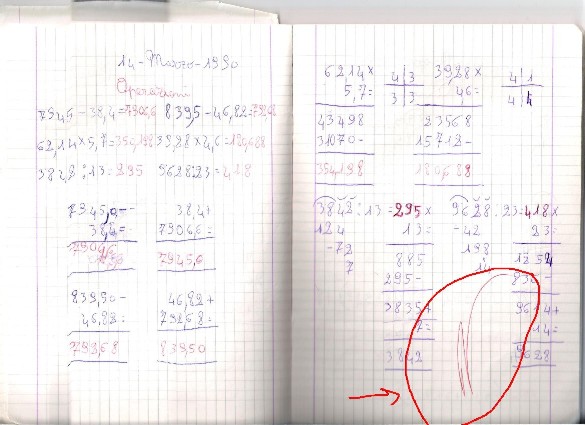 14-Marzo-1990
Operazioni
7945-38,4=7906,6 839,5-46,82=792,68
62,14×5,7=354,198 39,28×4,6=180,688
3842:13=295 9628:23=418
7945,0-
38,4=
7906,6
38,4+
7906,6=
7945,0
839,50-
46,82=
792,68
46,82+
792,68=
839,50
62,14×
5,7=
43498
31070-
354,198
4 3
3 3
39,28×
4,6=
23568
15712-
180,688
4 1
4 4
3842:13=295×
124 13=
-72 885
7 295-
3835+
7=
3842
9628:23=418×
-42 23=
198 1254
14 836-
9614+
14=
9628